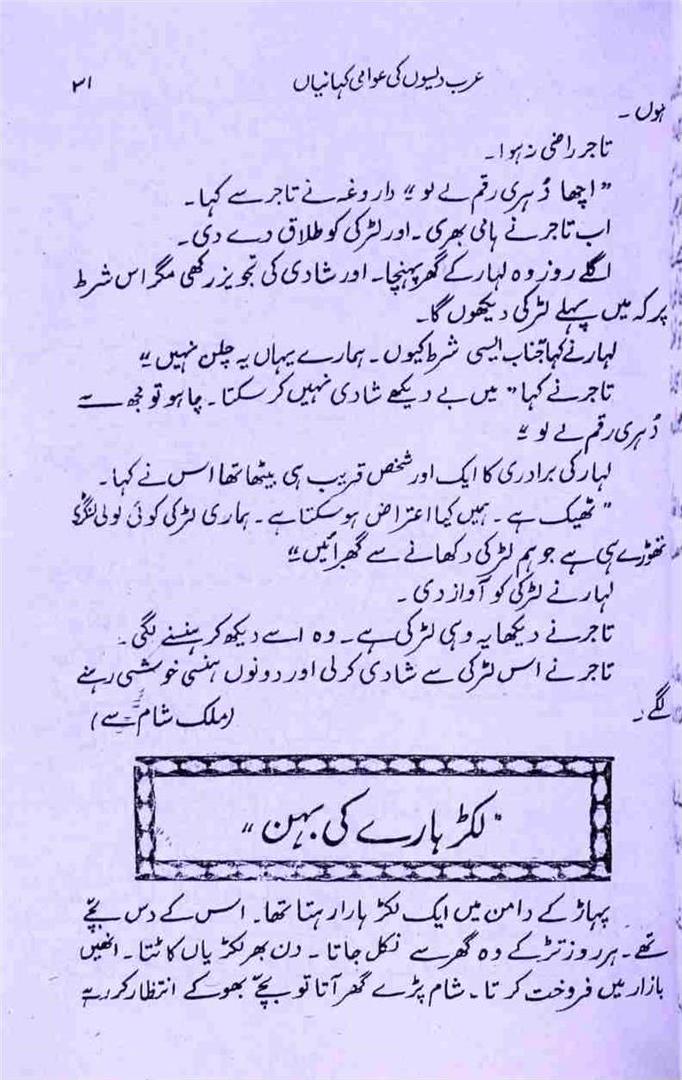 عرب دیسوں کی عوامی کہانیاں ۳۱
ہوں ۔
تاجر راضی نہ ہوا۔
”اچھا دُہری رقم لے لو“ داروغہ نے تاجر سے کہا۔
اب تاجر نے ہامی بھری ۔ اور لڑکی کو طلاق دے دی ۔
اگلے روز وہ لہار کے گھر پہنچا۔ اور شادی کی تجویز رکھی مگر اس شرط
پر کہ میں پہلے لڑکی دیکھوں گا۔
لہار نے کہا جناب ایسی شرط کیوں ۔ ہمارے یہاں یہ چلن نہیں “
تاجر نے کہا ” میں بے دیکھے شادی نہیں کر سکتا ۔ چاہو تو مجھ سے
دُہری رقم لے لو “
لہار کی برادری کا ایک اور شخص قریب ہی بیٹھا تھا اس نے کہا ۔
” ٹھیک ہے ۔ ہمیں کیا اعتراض ہو سکتا ہے ۔ ہماری لڑکی کوئی لولی لنگڑی
تھوڑے ہی ہے جو ہم لڑکی دکھانے سے گھبرائیں “
لہار نے لڑکی کو آواز دی ۔
تاجر نے دیکھا یہ وہی لڑکی ہے ۔ وہ اسے دیکھ کر ہنسنے لگی ۔
تاجر نے اس لڑکی سے شادی کر لی اور دونوں ہنسی خوشی رہنے
لگے ۔ (ملک شام سے)
” لکڑہارے کی بہن “
پہاڑ کے دامن میں ایک لکڑہارا رہتا تھا۔ اس کے دس بچّے
تھے ۔ ہر روز تڑکے وہ گھر سے نکل جاتا ۔ دن بھر لکڑیاں کاٹتا ۔ انھیں
بازار میں فروخت کرتا ۔ شام پڑے گھر آتا تو بچّے بھوکے انتظار کر رہے